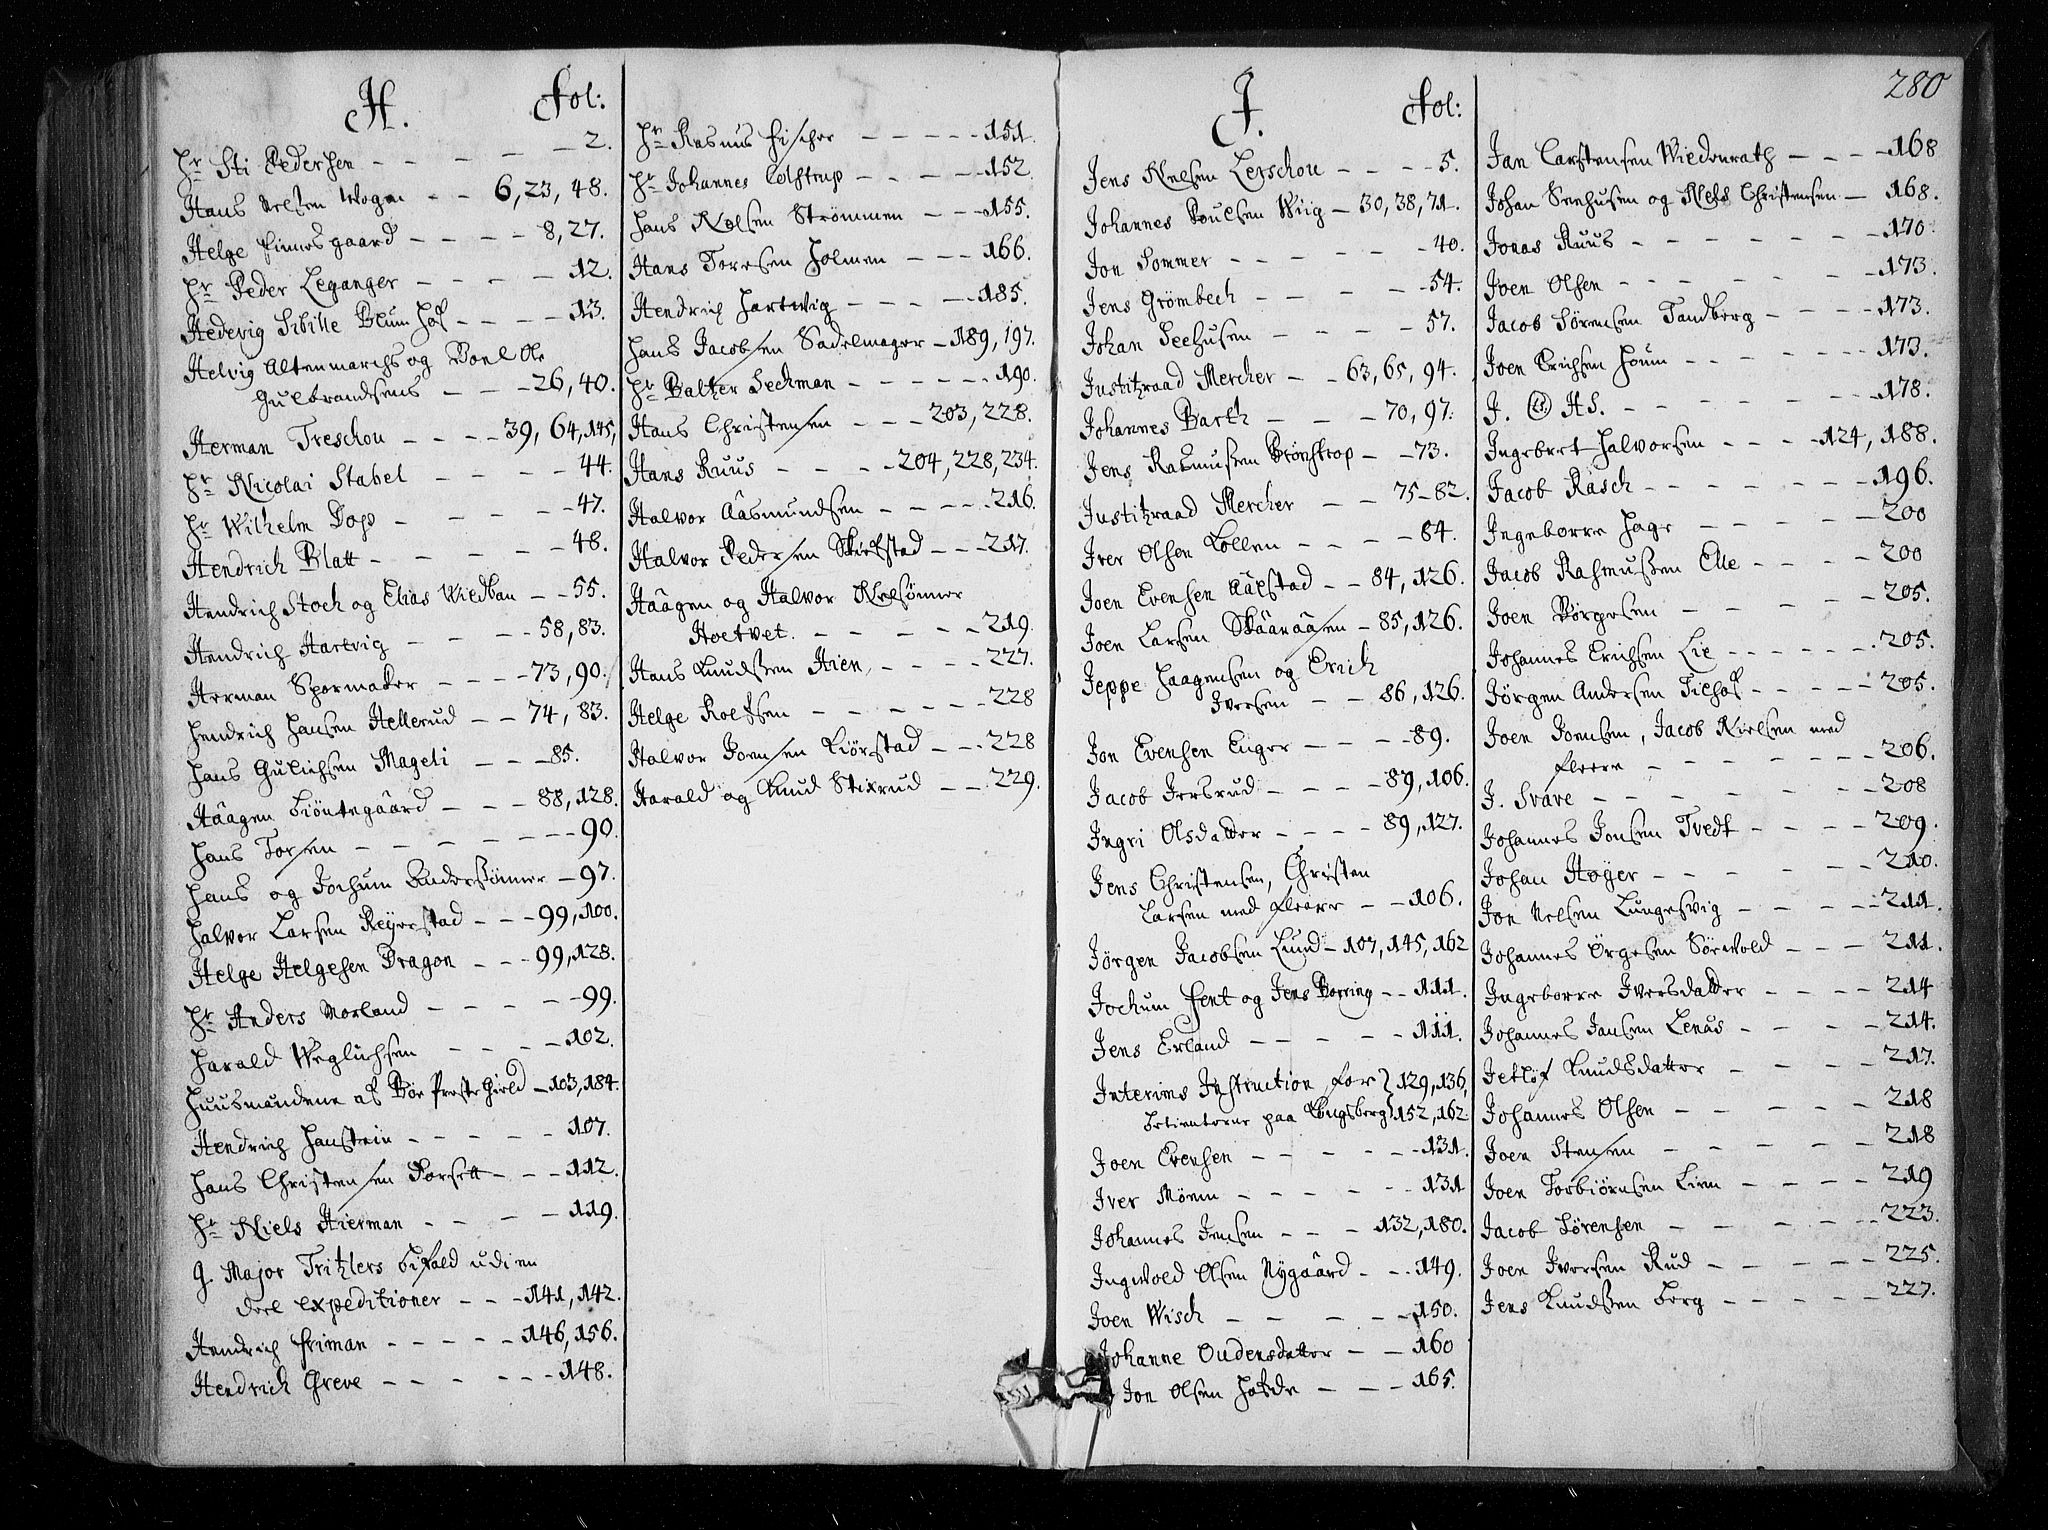 H. Fol:
Hr Sti Pedersen - - - - - 2.
Hans Nelsen Wogn - - 6, 23, 48.
Helge Finnesgaard - - - - 8, 27.
Hr Peder Leganger - - - - 12.
Hedevig Sibille Blumhof - - - - 13.
Helvig Altenmarchs og Boel Ole
Gulbrandsens - - - 26, 40.
Herman Treschou - - - - 39, 64, 145,
Hr Nicolai Stabel - - - - 44.
Hr Wilhelm Dop - - - - 47.
Hendrich Blatt - - - - - 48.
Hendrich Stoch og Elias Wiedban - - 55.
Hendrich Hartvig - - - - 58, 83.
Herman Spormaker - - - - 73, 90.
Hendrich Hansen Hellerud - - 74, 83.
Hans Gulichsen Mageli - - - 85.
Haagen Biöntegaard - - - 88, 128.
Hans Torsen - - - - - - - 90.
Hans og Jochum Andersönner - 97.
Halvor Larsen Reyerstad - - - 99, 100.
Helge Helgesen Dragon - - - 99, 128.
Hr Anders Morland - - - - - 99.
Harald Weglichsen - - - - - 102.
Huusmændene af Böe Preste Gield - 103, 184.
Hendrich Hanstein - - - - - 107.
Hans Christensen Dorsett - - - 112.
Hr Niels Hierman - - - - 119.
G. Major Tritzlers bifald udi en
deel expeditioner - - - 141, 142.
Hendrich Friman - - - - - 146, 156.
Hendrich Greve - - - - - - 148.
Hr Rasmus Fischer - - - - - 151.
Hr Johannes Colstrup - - - - - 152.
Hans Nelsen Strömmen - - - 155.
Hans Toresen Holmen - - - 166.
Hendrich Hartwig - - - - - 185.
Hans Jacobsen Sadelmager - 189, 197.
Hr Baltzer Seckman - - - - - - 190.
Hans Christensen - - - 203, 228.
Hans Ruus - - - - 204, 228, 234.
Halvor Aasmundsen - - - - 216.
Halvor Pedersen Skiefstad - - - 217.
Haagen og Halvor Nelsönner
Hoetvet. - - - - - 219.
Hans Knudsen Hien - - - - 227.
Helge Rolfsen - - - - - - 228
Halvor Joensen Kiörstad - - - 228
Harald og Knud Stixrud - - - 229.
J. Fol:
Jens Nelsen Lerschou - - - - 5.
Johannes Poulsen Wiig - 30, 38, 71.
Jon Sommer - - - - - - 40.
Jens Grömbech - - - - - 54.
Johan Seehusen - - - - - 57.
Justitzraad Mercher - - 63, 65, 94.
Johannes Barth - - - 70, 97.
Jens Rasmussen Brönstrop - - 73.
Justitzraad Mercher - - 75-82.
Iver Olsen Kollen - - - - 84.
Joen Evensen Aalstad - - 84, 126.
Joen Larsen Skaaraasen - 85, 126.
Jeppe Haagensen og Erich
Iversen - - 86, 126.
Jon Evensen Enger - - - - 89.
Jacob Jersrud - - - - 89, 106.
Ingri Olsdatter - - - - 89, 127.
Jens Christensen, Christen
Larsen med fleere - - 106.
Jörgen Jacobsen Lund - 107, 145, 162
Jochum Fent og Jens Borring - - 111.
Jens Erland - - - - - 111.
Interims Instruction for } 129, 136,
betienterne paa Kongsberg } 152, 162.
Joen Evensen - - - - - - 131.
Iver Möenn - - - - - - 131
Johannes Jensen - - - - 132, 180.
Ingwold Olsen Nygaard - - - 149.
Joen Wisch - - - - - - 150.
Johanne Oudensdatter - - - 160
Jon Olsen Holde - - - - 165.
280
Jan Carstensen Wiedenrath - - - - 168
Johan Seehusen og Niels Christensen - 168.
Jonas Ruus - - - - - - - 170.
Joen Olsen - - - - - - - 173.
Jacob Sörensen Tandberg - - - - 173.
Joen Erichsen Houm - - - - - - 173.
J. HS. - - - - - - - 178.
Ingebert Halvorsen - - - - 124, 188.
Jacob Rasch - - - - - - - 196.
Ingeborre Hage - - - - - 200
Jacob Rasmussen Elle - - - - 200
Joen Börgesen - - - - - 205.
Johannes Erichsen Lie - - - - - - 205.
Jörgen Andersen Tilhof - - - - - 205.
Joen Joensen, Jacob Nielsen med
fleere - - - - - - 206.
J. Svave - - - - - - - 208
Johannes Jonsen Tvedt - - - - 209.
Johan Höyer - - - - - - 210.
Jon Nelsen Lungesvig - - - - - 211.
Johannes Örgesen Sörwold - - - 211.
Ingeborre Iversdatter - - - - 214
Johannes Jansen Lenaas - - - - 214.
Jetlöf Knudsdatter - - - - 217.
Johannes Olsen - - - - - 218
Joen Stensen - - - - - - 218
Joen Torbiörnsen Lien - - - - 219
Jacob Sörensen - - - - - - 223.
Joen Iversen Rud - - - - - 225.
Jens Knudsen Berg - - - - - 227.